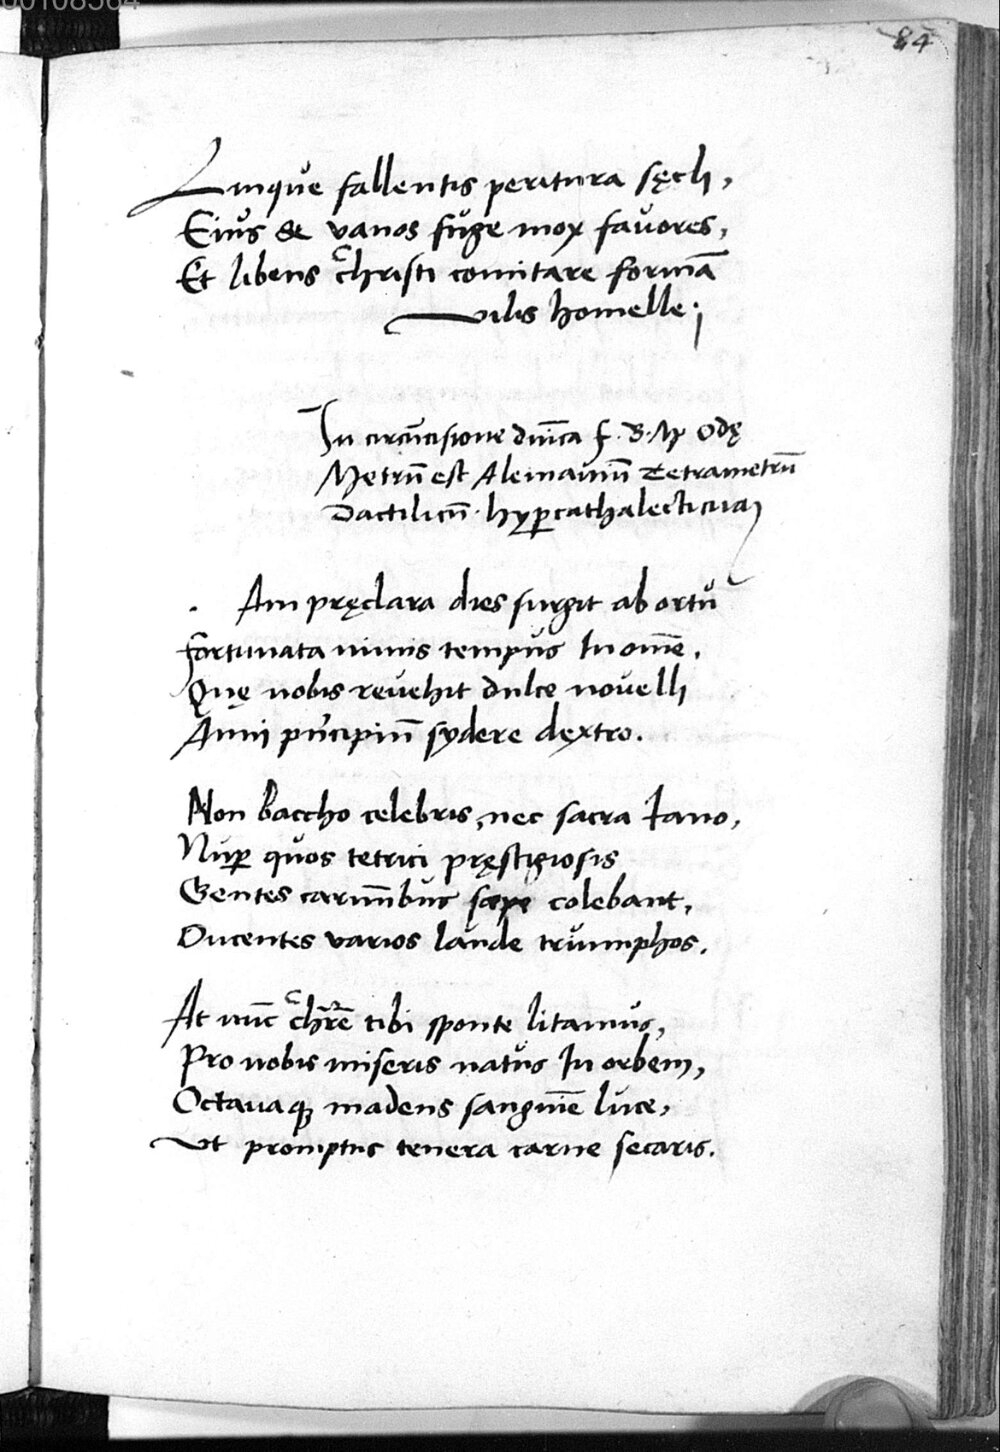 00108564
84
Linque fallentis peritura sęcli,
Eiůs & vanos fůge mox favores,
Et libens christi comitare formā
vilis homelle;
In circūcisione dnīca f. B. M Odę
Metrū est Alemaniū Tetrametrū
Dactilicū. hyꝑcathalecticum
Am pręclara dies surgit ab ortů
Fortunata nimis tempůs In om̄e.
Quę nobis revehit dulce novelli
Anni pn̄cipiū sydere dextro.
Non baccho celebris, nec sacra Iano,
Nuꝑ quos tetrici pręstigiosis
Gentes carmībus sæpe colebant,
Ducentes varios laude triumphos.
At nūc chr̄e tibi sponte litamus,
Pro nobis miseris natus In orbem,
Octavaqꝫ madens sanguīe luce,
Vt promptus tenera carne secaris.